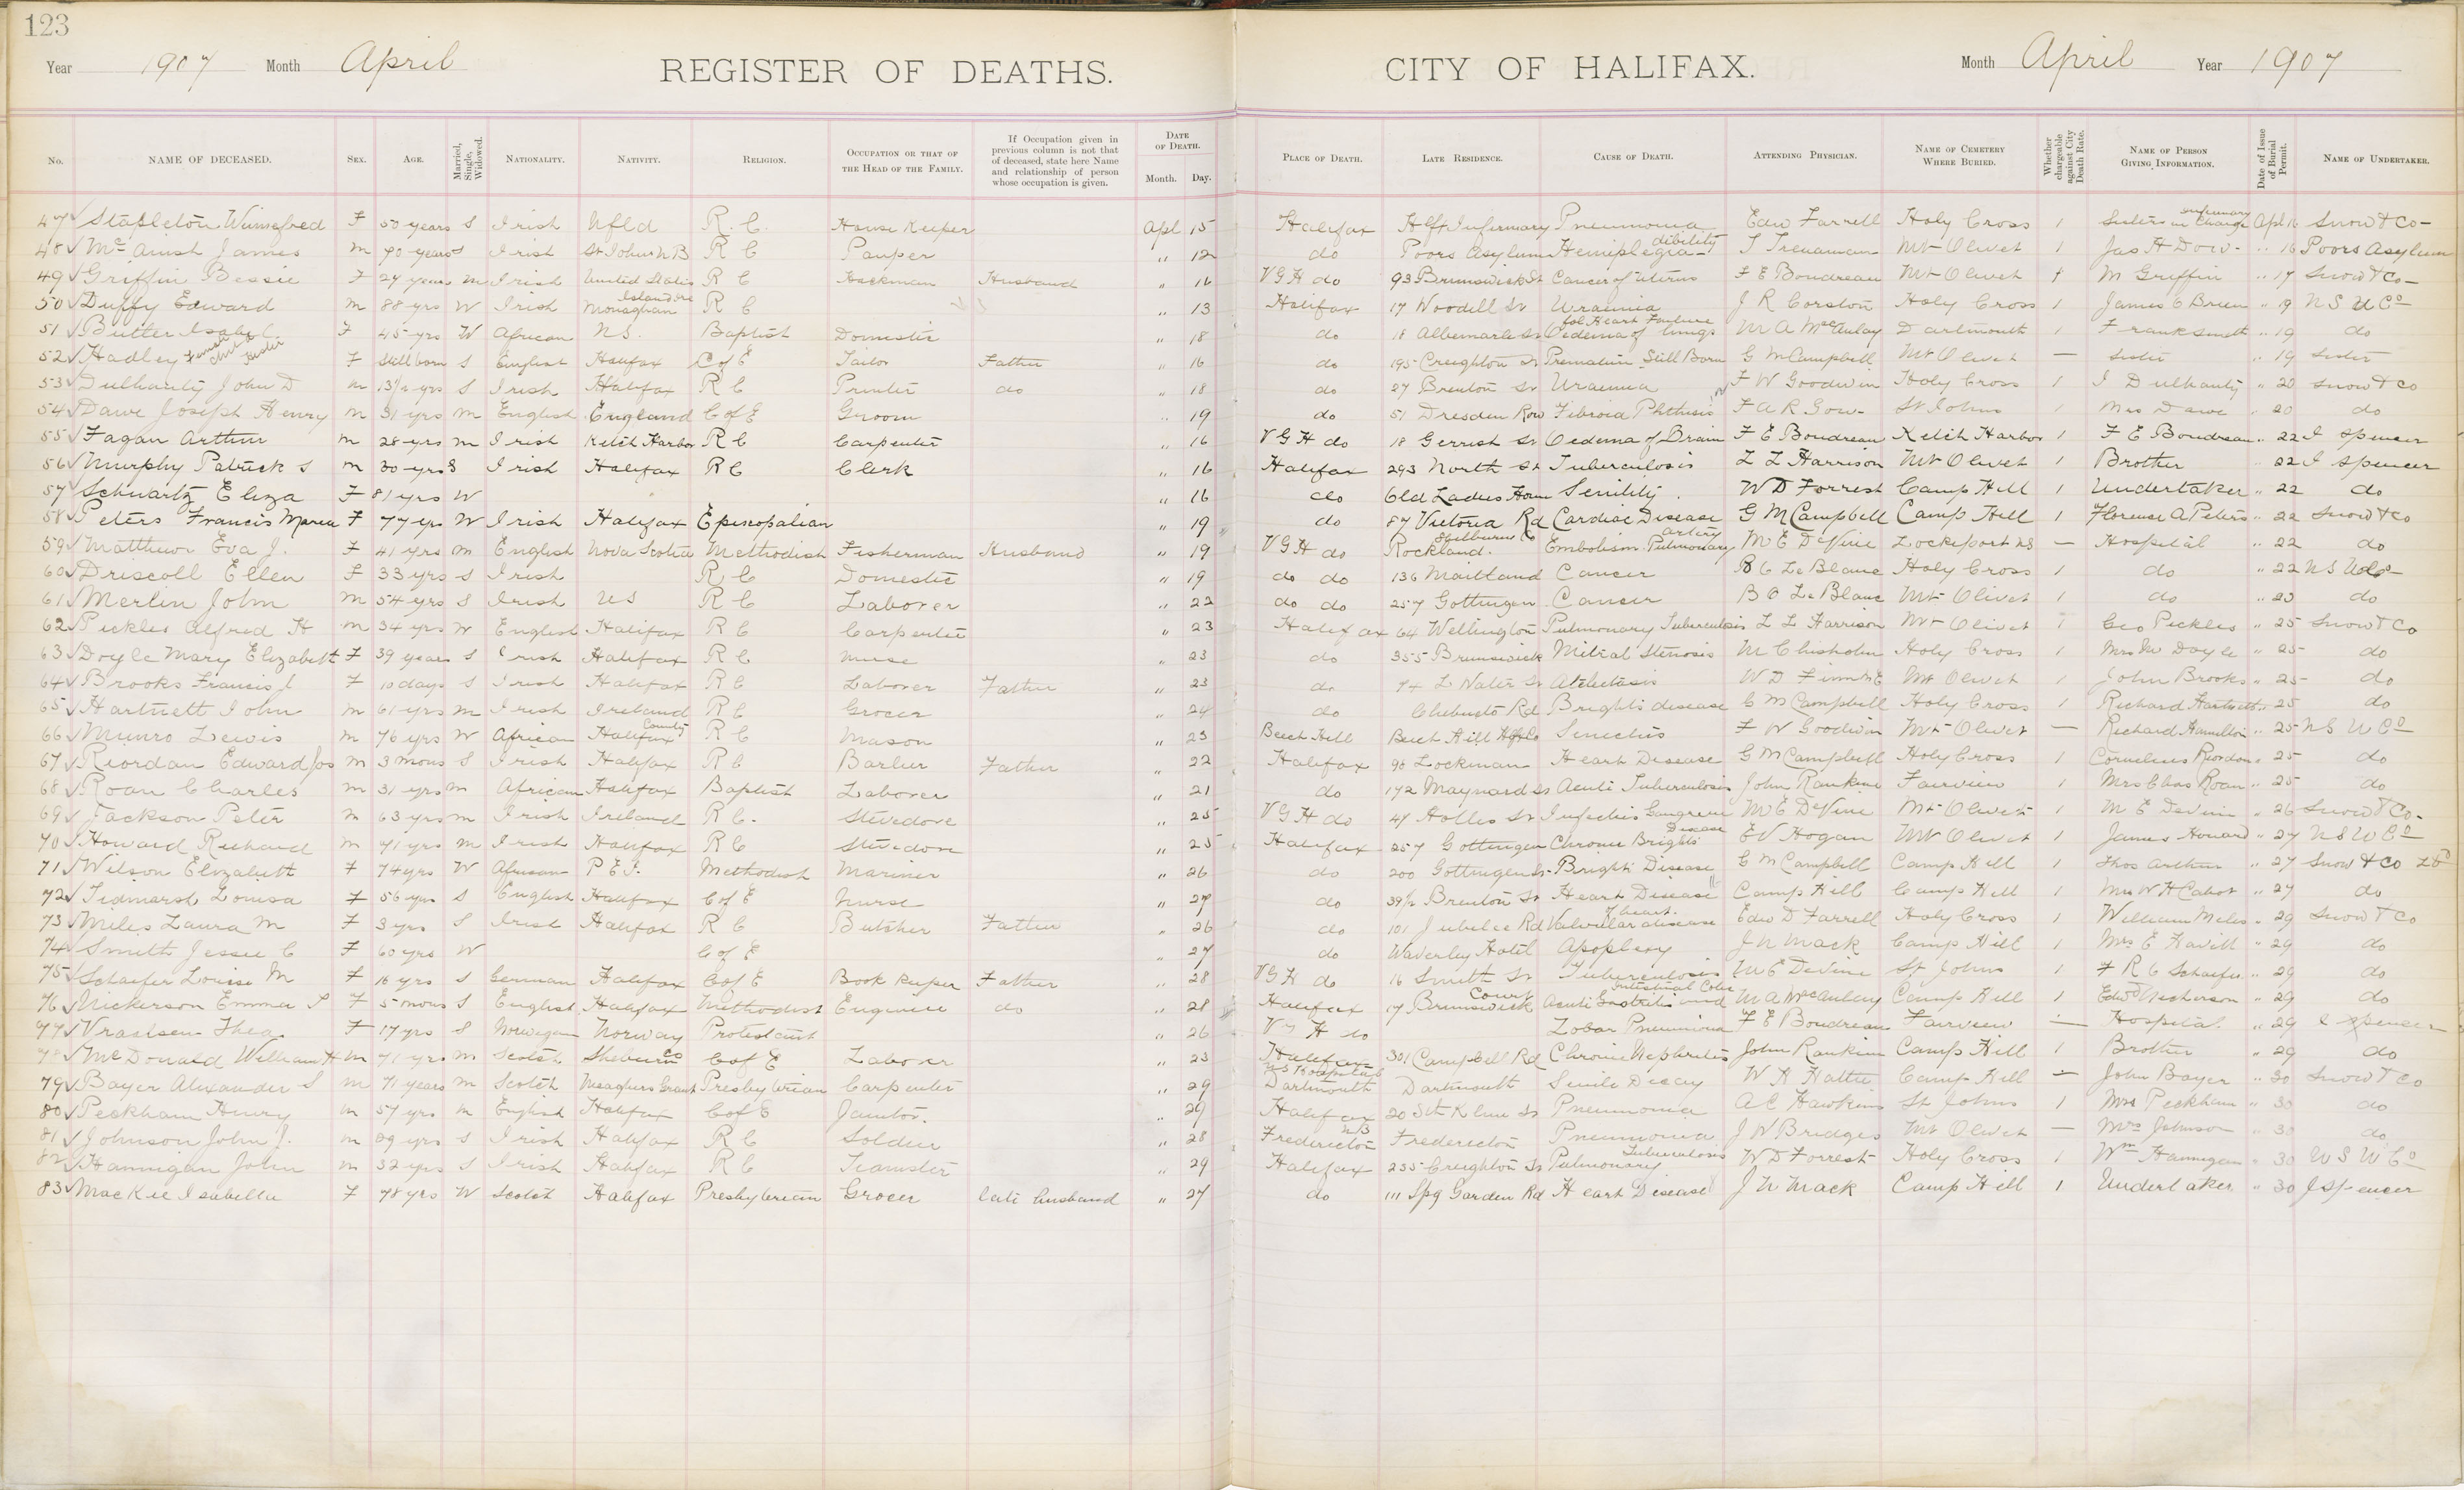 123
Year 1907 Month April REGISTER OF DEATHS. CITY OF HALIFAX. Month April Year 1907
No. NAME OF DECEASED. SEX. AGE. Married, Single, Widowed. NATIONALITY. NATIVITY. RELIGION. OCCUPATION OR THAT OF THE HEAD OF THE FAMILY. If Occupation given in previous column is not that of deceased, state here Name and relationship of person whose occupation is given. DATE OF DEATH. Month. Day. PLACE OF DEATH. LATE RESIDENCE. CAUSE OF DEATH. ATTENDING PHYSICIAN. NAME OF CEMETERY WHERE BURIED. Whether chargeable against City Death Rate. NAME OF PERSON GIVING INFORMATION. Date of Issue of Burial Permit. NAME OF UNDERTAKER.
47 Stapleton Winnefred F 50 years S Irish Nfld R. C. House Keeper Apl 15 Halifax Hfx Infirmary Pneumonia Edw Farrell Holy Cross 1 Sister in Charge infirmary Apl 16 Snow & Co
48 James m 70 years S Irish St Johns N B R C Pauper " 12 do Poors Asylum Hemiplegia debility Trenaman Mt Olivet 1 Jas H Dow " 16 Poors Asylum
49 Griffin Bessie F 27 years m Irish United States R C Hackman Husband " 16 V G H do 93 Brunswick St Cancer of Uterus F E Boudreau Mt Olivet 1 M Griffin " 17 Snow & Co
50 Duffy Edward m 88 yrs W Irish Monaghan Ireland R C " 13 Halifax 17 Woodill St Uraemia J R Corston Holy Cross 1 James O Brien " 19 N S U Co
51 Butler Isabel C. F 45 yrs W African N S. Baptist Domestic " 18 do 18 Albemarle St Oedema of lungs Heart Failure M A MacAulay Dartmouth 1 Frank Smith " 19 do
52 Hadley F Still born S English Halifax C of E Tailor Father " 16 do 195 Creighton St Premature Still Born G M Campbell Mt Olivet — Sister " 19 Sister
53 Dulhanty John D m 13 yrs S Irish Halifax R C Printer do " 18 do 27 Brenton St Uraemia F W Goodwin Holy Cross 1 J Dulhanty " 20 Snow & Co
54 Dawe Joseph Henry m 31 yrs m English England C of E Groom " 19 do 51 Dresden Row Fibroid Phthisis F A R Gow St Johns 1 Mrs Dawe " 20 do
55 Fagan Arthur m 28 yrs m Irish Ketch Harbor R C Carpenter " 16 V G H do 18 Gerrish St Oedema of Brain F E Boudreau Ketch Harbor 1 F E Boudreau " 22 J Spencer
56 Murphy Patrick S m 30 yrs S Irish Halifax R C Clerk " 16 Halifax 293 North St Tuberculosis L L Harrison Mt Olivet 1 Brother " 22 J Spencer
57 Schwartz Eliza F 81 yrs W " 16 do Old Ladies Home Senility. W D Forrest Camp Hill 1 Undertaker " 22 do
58 Peters Francis Maria F 77 yrs W Irish Halifax Episcopalian " 19 do 87 Victoria Rd Cardiac Disease G M Campbell Camp Hill 1 Florence A Peters " 22 Snow & Co
59 Matthews Eva J. F 41 yrs m English Nova Scotia Methodist Fisherman Husband " 19 V G H do Rockland. Shelburne Co Embolism Pulmonary artery M E DeVine Lockeport NS — Hospital " 22 do
60 Driscoll Ellen F 33 yrs S Irish R C Domestic " 19 do do 136 Maitland Cancer B C Le Blanc Holy Cross 1 do " 22 N S U Co
61 Merlin John m 54 yrs S Irish R C Laborer " 22 do do 257 Gottingen Cancer B O Le Blanc Mt Olivet 1 do " 23 do
62 Pickles Alfred H m 34 yrs W English Halifax R C Carpenter " 23 Halifax 64 Wellington Pulmonary Tuberculosis L L Harrison Mt Olivet 1 Geo Pickles " 25 Snow & Co
63 Doyle Mary Elizabeth F 39 years S Irish Halifax R C Nurse " 23 do 355 Brunswick Mitral Stenosis M Chisholm Holy Cross 1 Mrs M Doyle " 25 do
64 Brooks Francis J F 10 days S Irish Halifax R C Laborer Father " 23 do 74 L Water St Atelectasis W D Finn M E Mt Olivet 1 John Brooks " 25 do
65 Hartnett John m 61 yrs m Irish Ireland R C Grocer " 24 do Chebucto Rd Brights disease C M Campbell Holy Cross 1 Richard Hartnett " 25 do
66 Munro Lewis m 76 yrs W African Halifax County R C Mason " 23 Beech Hill Beech Hill Hfx Co Senectus F W Goodwin Mt Olivet — Richard Hamilton " 25 N S U Co
67 Riordan Edward Jos m 3 mons S Irish Halifax R C Barber Father " 22 Halifax 98 Lockman Heart Disease G M Campbell Holy Cross 1 Cornelius Riordan " 25 do
68 Roan Charles m 31 yrs m African Halifax Baptist Laborer " 21 do 172 Maynard St Acute Tuberculosis John Rankine Fairview 1 Mrs Chas Roan " 25 do
69 Jackson Peter m 63 yrs m Irish Ireland R C. Stevedore " 25 V G H do 47 Hollis St Infectious Gangrene M E DeVine Mt Olivet 1 M E Devine " 26 Snow & Co.
70 Howard Richard m 71 yrs m Irish Halifax R C Stevedore " 25 Halifax 257 Gottingen Chronic Brights Disease E V Hogan Mt Olivet 1 James Howard " 27 N S U Co
71 Wilson Elizabeth F 74 yrs W African P E I. Methodist Mariner " 26 do 200 Gottingen St Brights Disease C M Campbell Camp Hill 1 Thos Arthur " 27 Snow & Co
72 Tidmarsh Louisa F 56 yrs S English Halifax C of E Nurse " 27 do 39½ Brenton St Heart Disease Camp Hill Camp Hill 1 Mrs W H Cabot " 27 do
73 Miles Laura M F 3 yrs S Irish Halifax R C Butcher Father " 26 do 101 Jubilee Rd Valvular disease of heart. Edw D Farrell Holy Cross 1 William Miles " 29 Snow & Co
74 Smith Jessie C F 60 yrs W C of E " 27 do Waverley Hotel Apoplexy J N Mack Camp Hill 1 Mrs E Havill " 29 do
75 Schaefer Louise M F 16 yrs S German Halifax C of E Book Keeper Father " 28 V G H do 16 Smith St Tuberculosis M E DeVine St Johns 1 F R C Schaefer " 29 do
76 Nickerson Emma S F 5 mons S English Halifax Methodist Engineer do " 28 Halifax 17 Brunswick Court Acute Gastritis and Intestinal Colic M A MacAulay Camp Hill 1 Edwd Nickerson " 29 do
77 Thea F 17 yrs S Norwegian Norway Protestant " 26 V G H do Lobar Pneumonia F E Boudreau Fairview — Hospital " 29 Spencer
78 McDonald William H m 71 yrs m Scotch Sheburn Co C of E Laborer " 23 Halifax 301 Campbell Rd Chronic Nephritis John Rankine Camp Hill 1 Brother " 29 do
79 Bayer Alexander S m 71 years m Scotch Meaghers Grant Presbyterian Carpenter " 29 N S Hospital Dartmouth Dartmouth Senile Decay W H Hattie Camp Hill — John Bayer " 30 Snow & Co
80 Peckham Henry m 57 yrs m English Halifax C of E Janitor. " 29 Halifax 20 Sth Kline St Pneumonia A C Hawkins St Johns 1 Mrs Peckham " 30 do
81 Johnson John J. m 29 yrs S Irish Halifax R C Soldier " 28 Fredericton N B Fredericton Pneumonia J W Bridges Mt Olivet — Mrs Johnson " 30 do
82 Hannigan John m 32 yrs S Irish Halifax R C Teamster " 29 Halifax 235 Creighton St Pulmonary Tuberculosis W D Forrest Holy Cross 1 Wm Hannigan " 30 N S U Co
83 MacKie Isabella F 78 yrs W Scotch Halifax Presbyterian Grocer late husband " 27 do 111 Spg Garden Rd Heart Disease J N Mack Camp Hill 1 Undertaker " 30 J Spencer